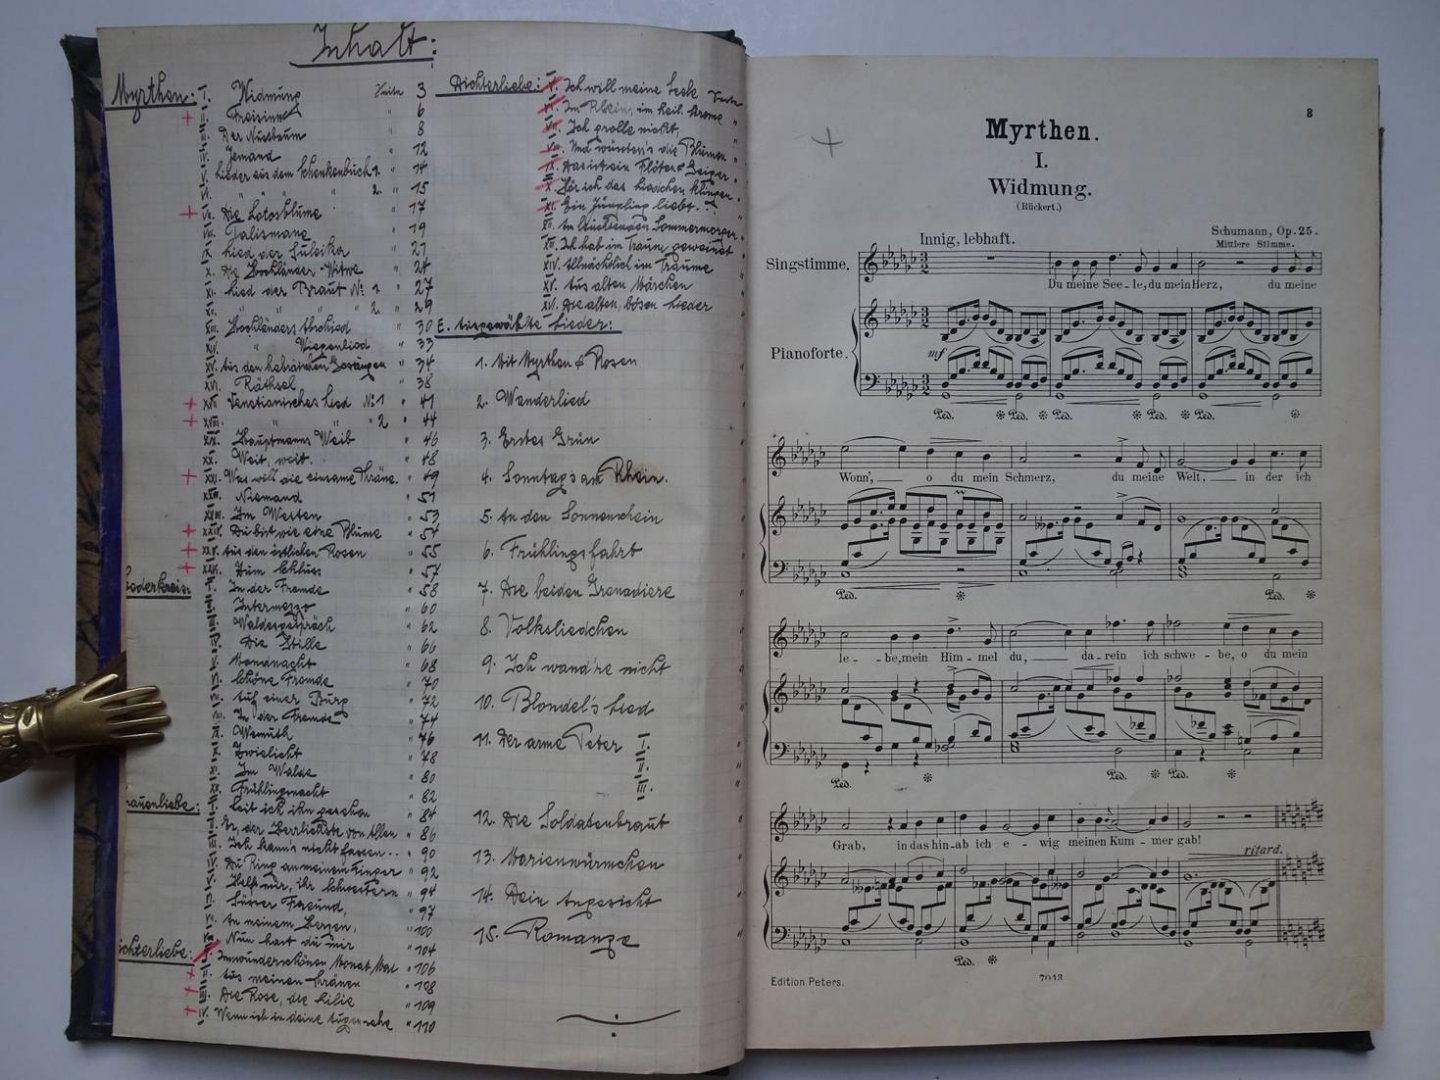 Inhalt:
Myrthen: I. Widmung Seite 3
II. Freisinn " 6
III. Der Nussbaum " 8
IV. Jemand " 12
V. Lieder aus dem Schenkenbuch 1 " 14
VI. " " " " 2. " 15
VII. Die Lotosblume " 17
VIII. Talismane " 19
IX. Lied der Suleika " 21
X. Die Hochländer-Witwe " 24
XI. Lied der Braut No 1 " 27
XII. " " " " 2 " 29
XIII. Hochländers Abschied " 30
XIV. " Wiegenlied " 33
XV. Aus den hebräischen Gesängen " 34
XVI. Räthsel " 38
XVII. Venetianisches Lied No 1 " 41
XVIII. " " " 2 " 44
XIX. Hauptmanns Weib " 46
XX. Weit, weit. " 48
XXI. Was will die einsame Thräne. " 49
XXII. Niemand " 51
XXIII. Im Westen " 53
XXIV. Du bist wie eine Blume " 54
XXV. Aus den östlichen Rosen " 55
XXVI. Zum Schluss " 57
Liederkreis: I. In der Fremde " 58
II. Intermezzo " 60
III. Waldesgespräch " 62
IV. Die Stille " 66
V. Mondnacht " 68
VI. Schöne Fremde " 70
VII. Auf einer Burg " 72
VIII. In der Fremde " 74
IX. Wemuth " 76
X. Zwielicht " 78
XI. Im Walde " 80
XII. Frühlingsnacht " 82
rauenliebe: I. Seit ich ihn gesehen " 84
II. Er, der Herrlichste von Allen " 86
III. Ich kann's nicht fassen.. " 90
IV. Du Ring an meinem Finger " 92
V. Helft mir, ihr Schwestern " 94
VI. Süsser Freund, " 97
VII. An meinem Herzen, " 100
VIII. Nun hast du mir " 104
ichterliebe: I. Im wunderschönen Monat Mai " 106
II. Aus meinen Thränen " 108
III. Die Rose, die Lilie " 109
IV. Wenn ich in deine Augen sehe " 110
Dichterliebe: V. Ich will meine Seele Seite
VI. Im Rhein, im heil. Strome "
VII. Ich grolle nicht, "
VIII. Und wüssten's die Blumen "
IX. Das ist ein Flöten & Geigen "
X. Hör ich das Liedchen klingen "
XI. Ein Jüngling liebt... "
XII. Am leuchtenden Sommermorgen
XIII. Ich hab im Traum geweinet
XIV. Allnächtlich im Traume
XV. Aus alten Märchen
XVI. Die alten, bösen Lieder
E. Ausgewählte Lieder:
1. Mit Myrthen & Rosen
2. Wanderlied
3. Erstes Grün
4. Sonntags am Rhein.
5. An den Sonnenschein
6. Frühlingsfahrt
7. Die beiden Grenadiere
8. Volksliedchen
9. Ich wand're nicht
10. Blondel's Lied
11. Der arme Peter I.
II.
III.
12. Die Soldatenbraut
13. Marienwürmchen
14. Dein Angesicht
15. Romanze
3
Myrthen.
I.
Widmung.
(Rückert.)
Schumann, Op. 25.
Mittlere Stimme.
Innig, lebhaft.
Singstimme.
Du meine See-le, du mein Herz, du meine
Pianoforte.
mf
Ped. * Ped. * Ped. * Ped. * Ped. *
Wonn', o du mein Schmerz, du meine Welt, in der ich
Ped. * Ped. *
le-be, mein Him-mel du, da-rein ich schwe-be, o du mein
Ped. * Ped. * Ped. *
Grab, in das hin-ab ich e-wig meinen Kum-mer gab!
ritard.
Ped. *
Edition Peters.